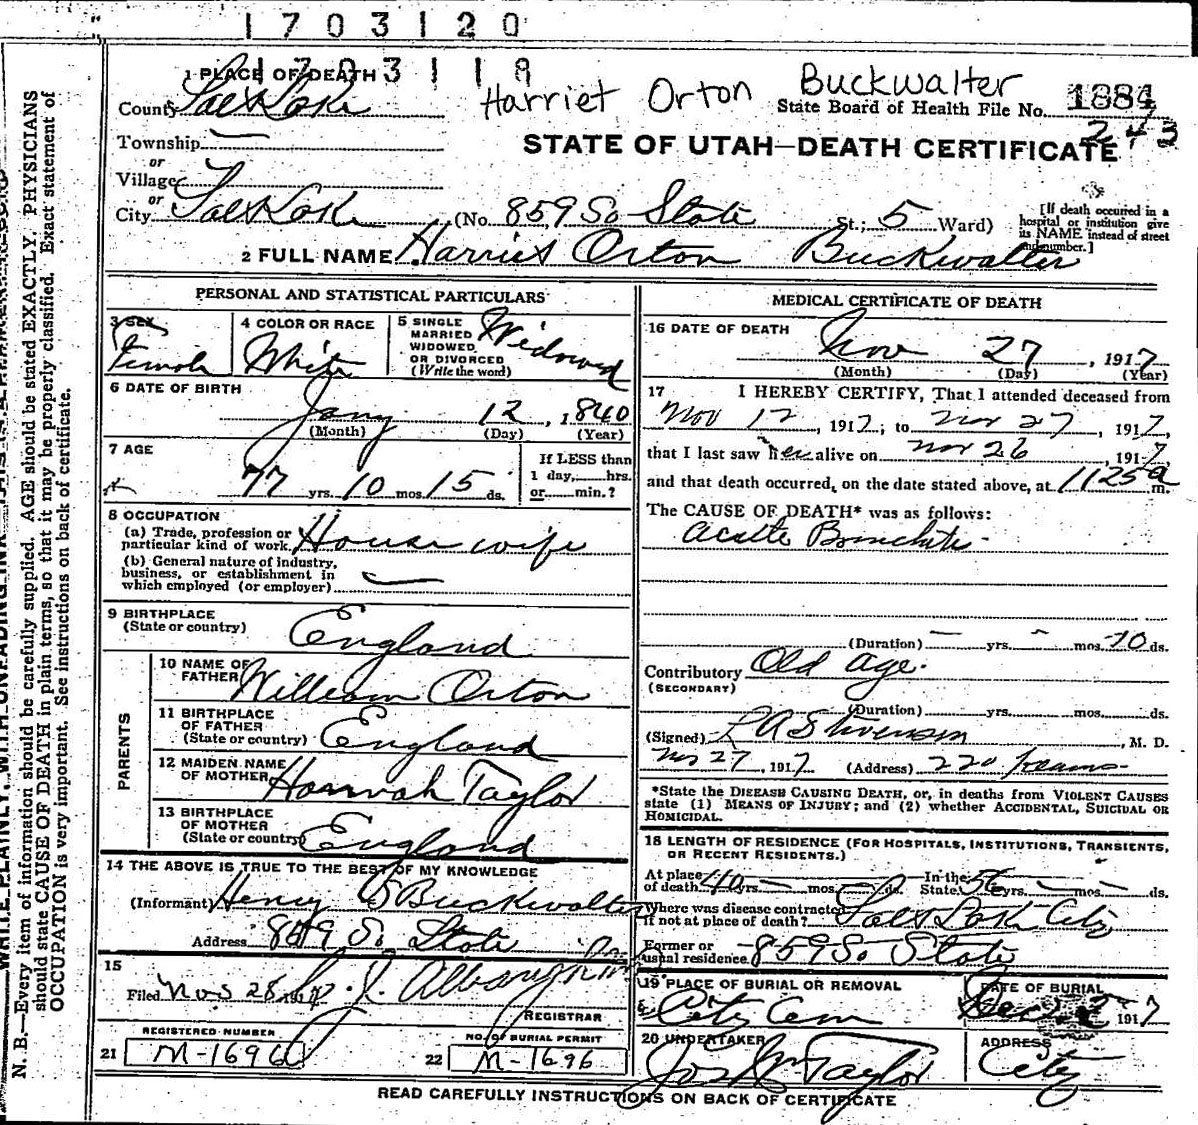 1703120
1703118
1 PLACE OF DEATH
Harriet Orton Buckwalter
County Salt Lake
State Board of Health File No. 1884
243
Township
STATE OF UTAH—DEATH CERTIFICATE
or
Village
or
City Salt Lake (No. 859 So State St.; 5 Ward)
[If death occurred in a
hospital or institution give
its NAME instead of street
and number.]
2 FULL NAME Harriet Orton Buckwalter
PERSONAL AND STATISTICAL PARTICULARS
3 SEX
Female
4 COLOR OR RACE
White
5 SINGLE
MARRIED
WIDOWED
OR DIVORCED
(Write the word)
Widowed
6 DATE OF BIRTH
Jany 12, 1840
(Month) (Day) (Year)
7 AGE
77 yrs. 10 mos. 15 ds.
If LESS than
1 day, hrs.
or min.?
8 OCCUPATION
(a) Trade, profession or
particular kind of work. House wife
(b) General nature of industry,
business, or establishment in
which employed (or employer)
9 BIRTHPLACE
(State or country)
England
PARENTS
10 NAME OF
FATHER William Orton
11 BIRTHPLACE
OF FATHER
(State or country) England
12 MAIDEN NAME
OF MOTHER Hannah Taylor
13 BIRTHPLACE
OF MOTHER
(State or country) England
14 THE ABOVE IS TRUE TO THE BEST OF MY KNOWLEDGE
(Informant) Henry Buckwalter
Address 859 So State
15
Filed Nov 28, 1917
REGISTRAR
REGISTERED NUMBER
21 M-1696
NO. OF BURIAL PERMIT
22 M-1696
MEDICAL CERTIFICATE OF DEATH
16 DATE OF DEATH
Nov 27, 1917
(Month) (Day) (Year)
17 I HEREBY CERTIFY, That I attended deceased from
Nov 12, 1917; to Nov 27, 1917,
that I last saw her alive on Nov 26, 1917
and that death occurred, on the date stated above, at 1125 a m.
The CAUSE OF DEATH* was as follows:
Acute Bronchitis
(Duration) yrs. mos. 10 ds.
Contributory Old Age.
(SECONDARY)
(Duration) yrs. mos. ds.
(Signed) Stevenson, M. D.
Nov 27, 1917 (Address) 220 Kearns
*State the DISEASE CAUSING DEATH, or, in deaths from VIOLENT CAUSES
state (1) MEANS OF INJURY; and (2) whether ACCIDENTAL, SUICIDAL OR
HOMICIDAL.
18 LENGTH OF RESIDENCE (FOR HOSPITALS, INSTITUTIONS, TRANSIENTS,
OR RECENT RESIDENTS.)
At place
of death 40 yrs. mos. ds.
In the
State 56 yrs. mos. ds.
Where was disease contracted
if not at place of death? Salt Lake City
Former or
usual residence 859 So State
19 PLACE OF BURIAL OR REMOVAL
City Cem
DATE OF BURIAL
Dec 2 1917
20 UNDERTAKER
Jos Wm Taylor
ADDRESS
City
READ CAREFULLY INSTRUCTIONS ON BACK OF CERTIFICATE
N. B.—Every item of information should be carefully supplied. AGE should be stated EXACTLY. PHYSICIANS
should state CAUSE OF DEATH in plain terms, so that it may be properly classified. Exact statement of
OCCUPATION is very important. See instructions on back of certificate.